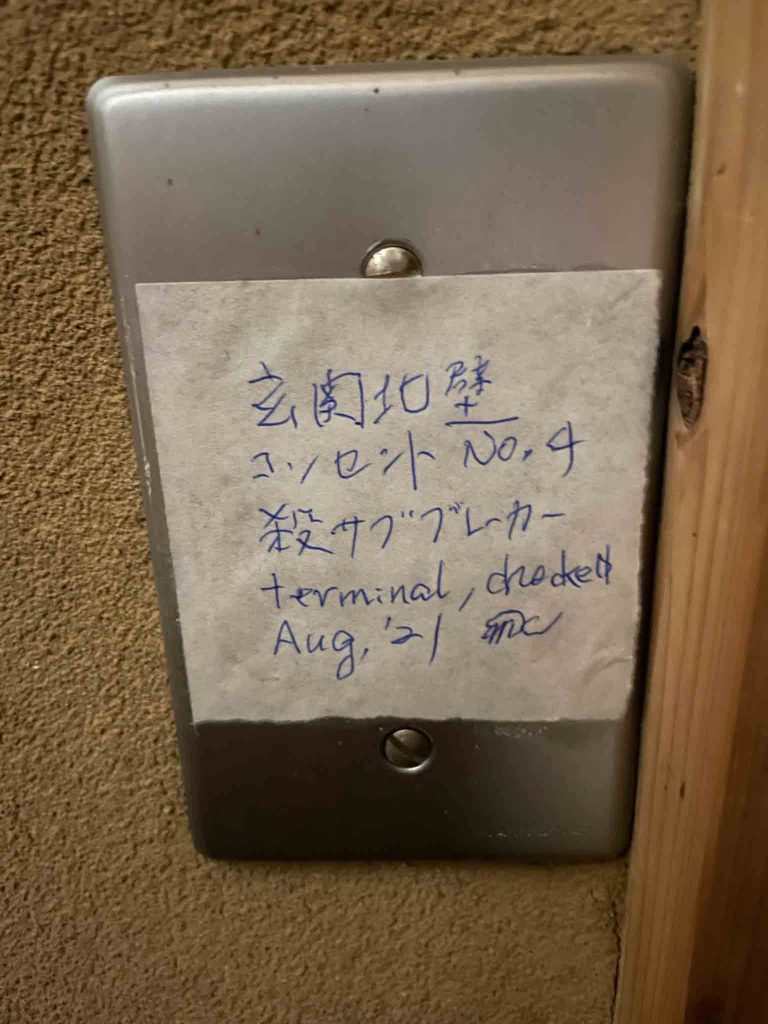 玄関北壁
コンセント No. 4
殺サブブレーカー
terminal, checked
Aug, '21